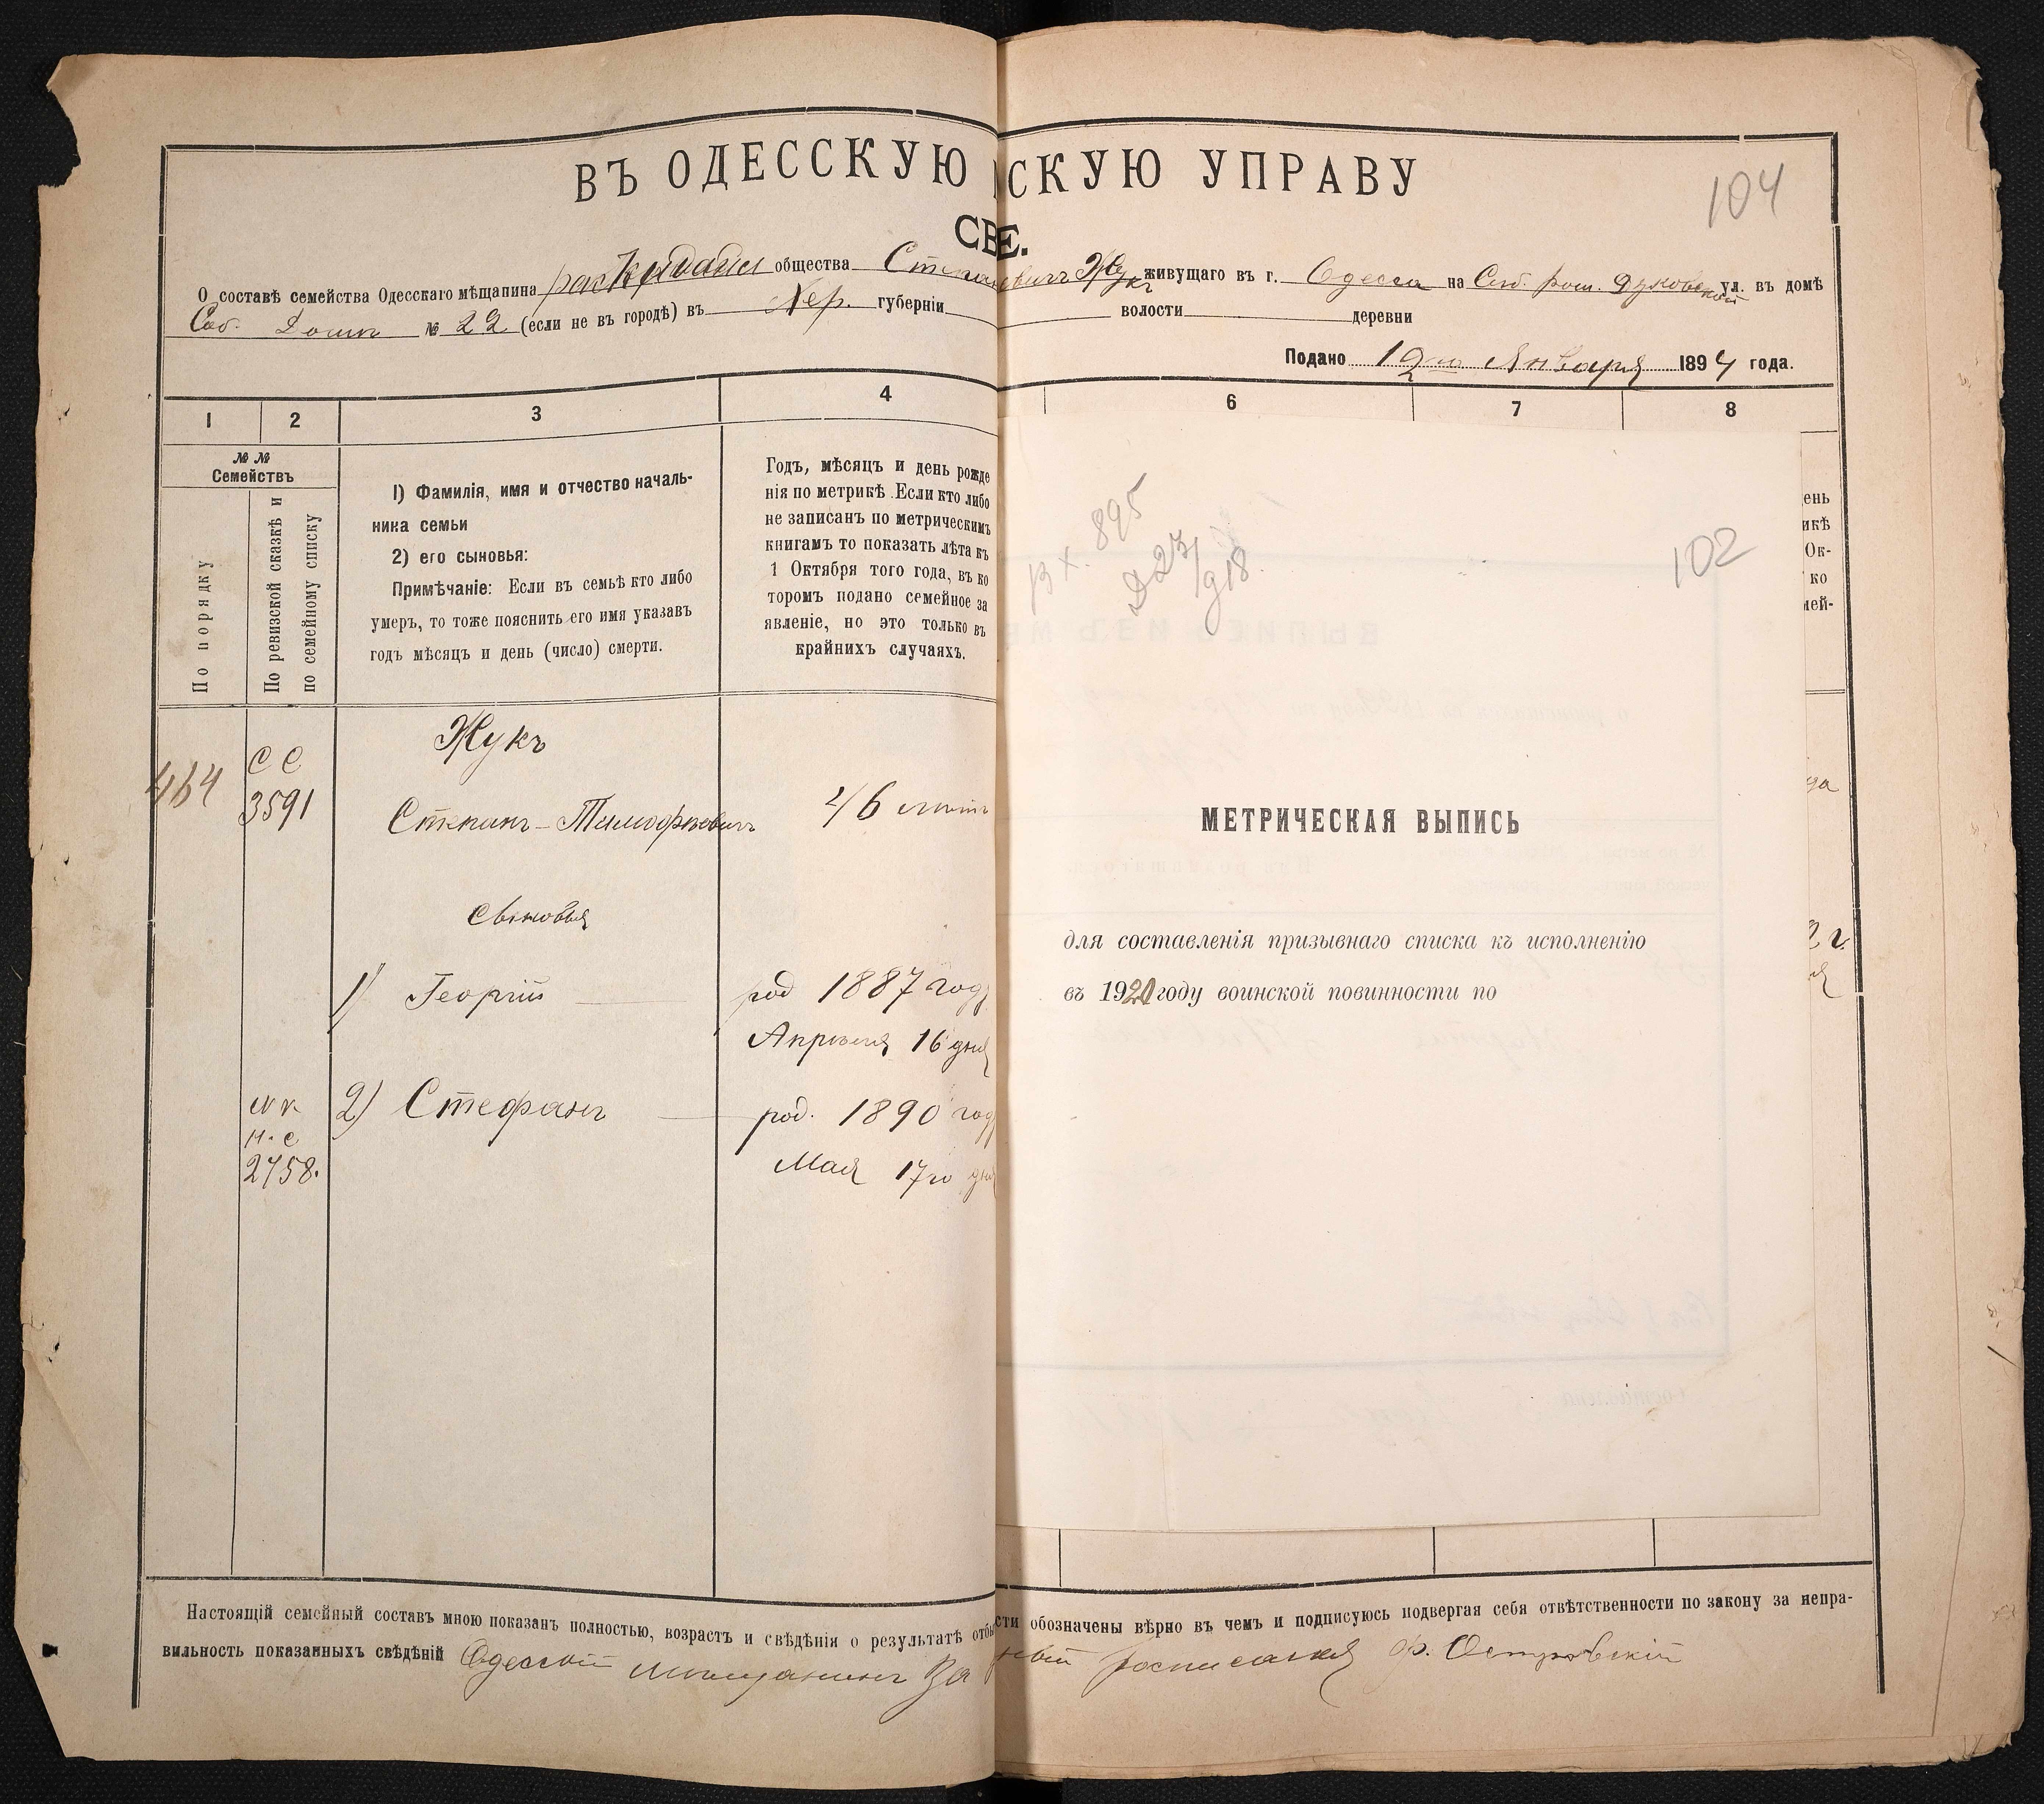 ВЪ ОДЕССКУЮ СКУЮ УПРАВУ
104
СВЕ.
О составѣ семейства Одесскаго мѣщанина общества Жукъ живущаго въ г. Одесса на ул. въ домѣ
Соб. Домъ № 22 (если не въ городѣ) въ Хер. губерніи волости деревни
Подано 12го Января 1894 года.
1 2 3 4 6 7 8
№ №
Семействъ
По порядку
По ревизской сказкѣ и
по семейному списку
1) Фамилія, имя и отчество началь-
ника семьи
2) его сыновья:
Примѣчаніе: Если въ семьѣ кто либо
умеръ, то тоже пояснить его имя указавъ
годъ мѣсяцъ и день (число) смерти.
Годъ, мѣсяцъ и день рожде
нія по метрикѣ. Если кто либо
не записанъ по метрическимъ
книгамъ то показать лѣта къ
1 Октября того года, въ ко
торомъ подано семейное за
явленіе, но это только въ
крайнихъ случаяхъ.
ень
икѣ
Ок-
ко
мей-
вх. 895
Д 27/918.
102
Жукъ
464 С С
3591 Степанъ-Тимофѣевичъ 46 лѣтъ
сыновья
1) Георгій род 1887 год
Апрѣля 16 дня
2) Стефанъ род. 1890 год
Мая 17го дня
н. с
2758.
МЕТРИЧЕСКАЯ ВЫПИСЬ
для составленія призывнаго списка къ исполненію
въ 1920 году воинской повинности по
Настоящій семейный составъ мною показанъ полностью, возрастъ и свѣдѣнія о результатѣ отбы сти обозначены вѣрно въ чемъ и подписуюсь подвергая себя отвѣтственности по закону за непра-
вильность показанныхъ свѣдѣній Одесскій мѣщанинъ За росписался Ф. Островскій